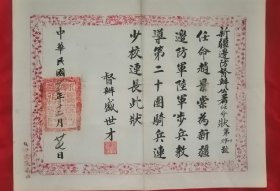 新疆邊防督辦公署任命狀第　號
任命趙景雲為新疆
邊防軍陸軍步兵教
導第二十團騎兵連
少校連長此狀
督辦盛世才
中華民國　年　月　日